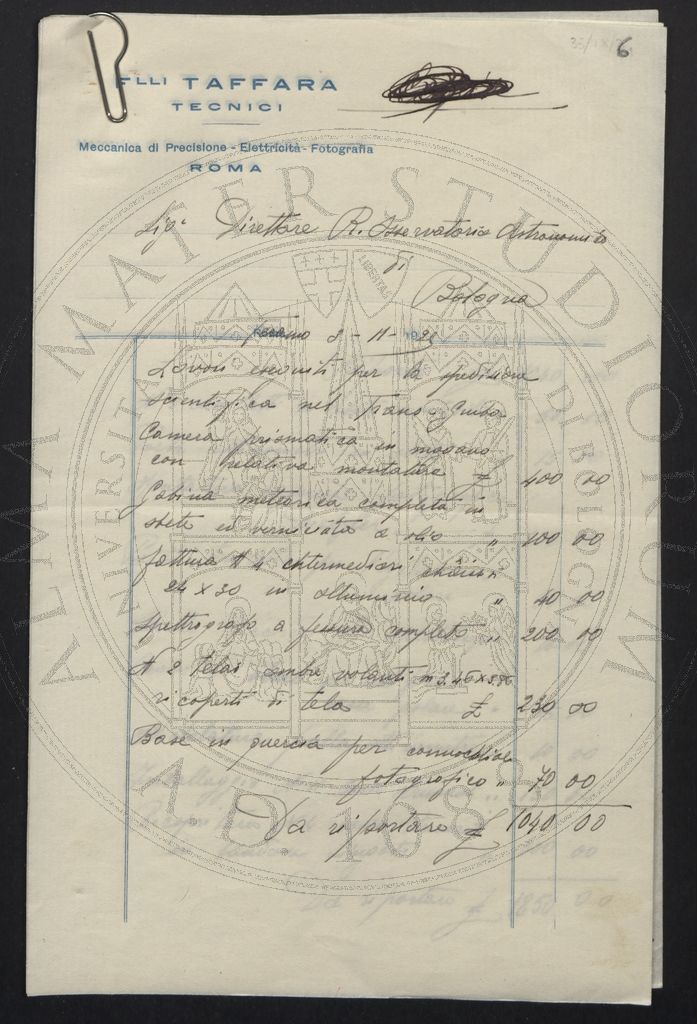 Flli TAFFARA
TECNICI
Meccanica di Precisione - Elettricità - Fotografia
ROMA
Sigr Direttore R. Osservatorio Astronomico
di
Bologna
2 - 11 - 192
Lavori eseguiti per la spedizione
scientifica nel Trans-Giuba
Camera prismatica in mogano
con relativa montatura £ 400 00
Cabina meteorica completa in
verniciata a olio " 100 00
fattura N 4 intermediari châssis
24 x 30 in alluminio " 40 00
Spettrografo a fessura completo " 200 00
N 2 telai ombre volanti m
ricoperti di tela £ 230 00
Base in quercia per
fotografico " 70 00
Da riportare £ 1040 00
Da riportare £ 1850 00
ALMA MATER STUDIORUM
A.D. 1088
LIBERTAS
6